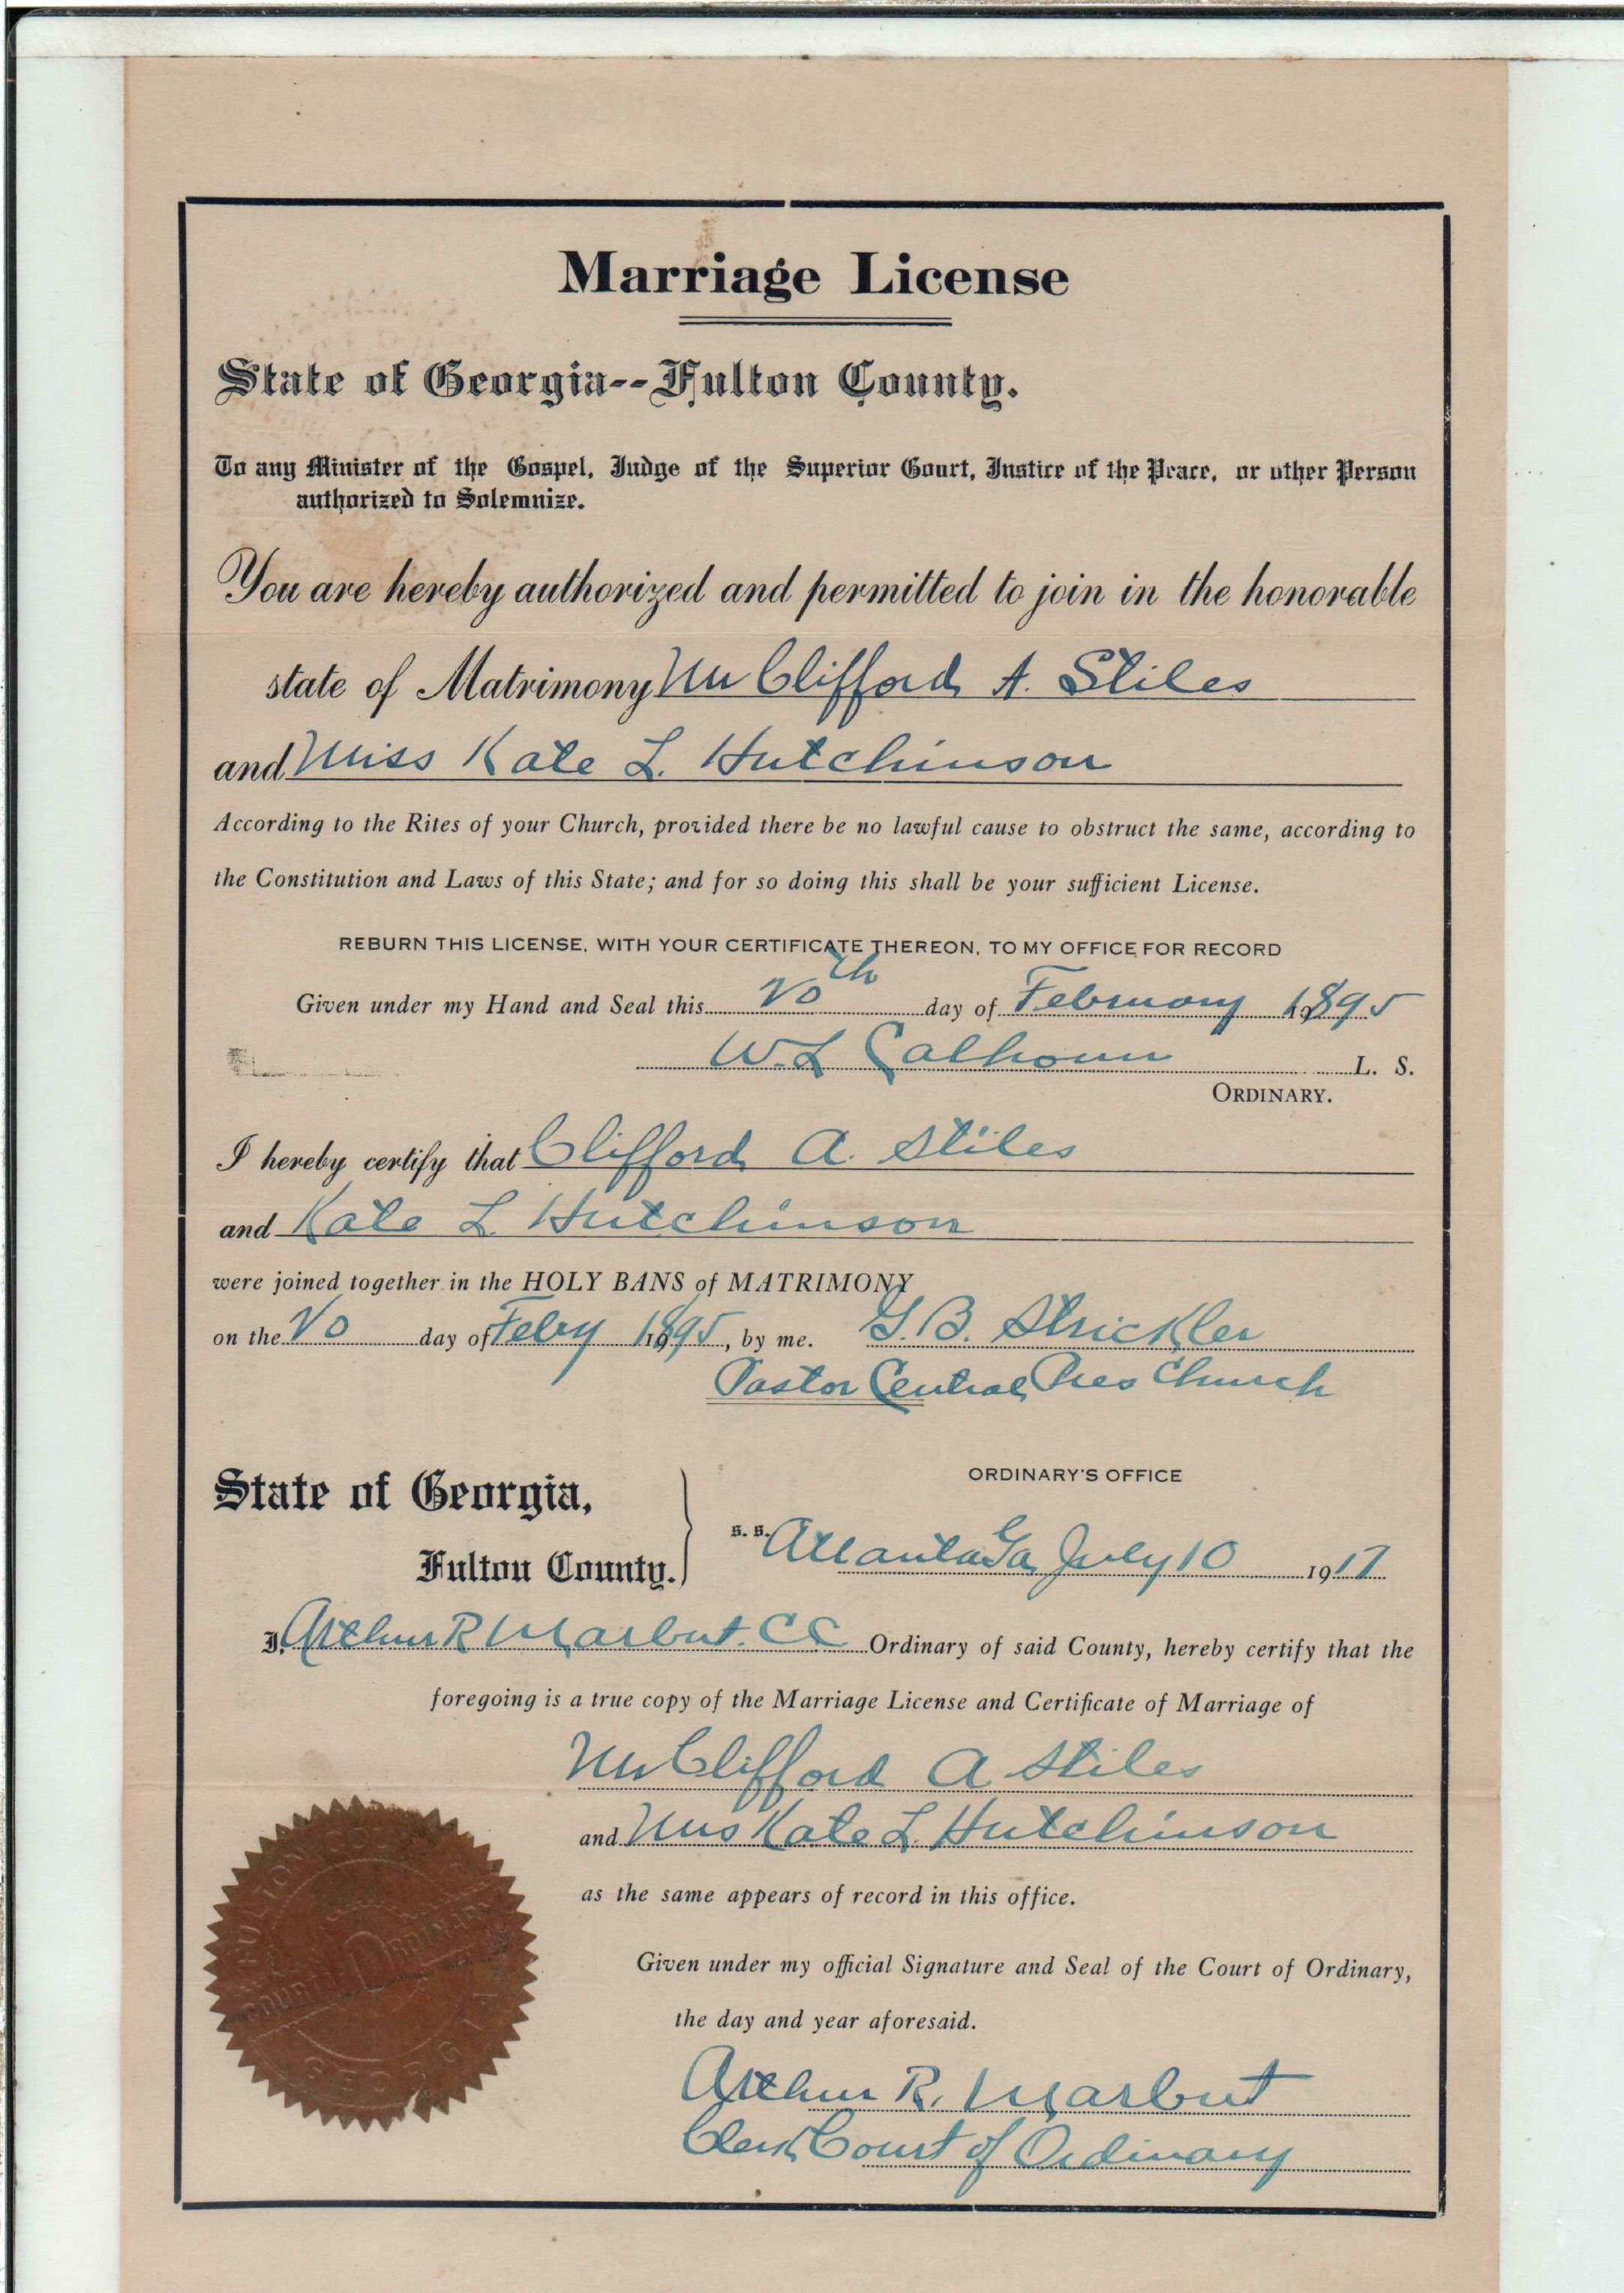 Marriage License
State of Georgia--Fulton County.
To any Minister of the Gospel, Judge of the Superior Court, Justice of the Peace, or other Person
authorized to Solemnize.
You are hereby authorized and permitted to join in the honorable
state of Matrimony Mr Clifford A. Stiles
and Miss Kate L. Hutchinson
According to the Rites of your Church, provided there be no lawful cause to obstruct the same, according to
the Constitution and Laws of this State; and for so doing this shall be your sufficient License.
REBURN THIS LICENSE, WITH YOUR CERTIFICATE THEREON, TO MY OFFICE FOR RECORD
Given under my Hand and Seal this 20th day of February 1895
W. L Calhoun L. S.
ORDINARY.
I hereby certify that Clifford A. Stiles
and Kate L Hutchinson
were joined together in the HOLY BANS of MATRIMONY
on the 20 day of Feby 1895, by me. G. B. Strickler
Pastor Central Pres Church
State of Georgia,
Fulton County.
ORDINARY'S OFFICE
s. s. Atlanta Ga July 10 1917
I, Arthur R Marbut. CC Ordinary of said County, hereby certify that the
foregoing is a true copy of the Marriage License and Certificate of Marriage of
Mr Clifford A Stiles
and Miss Kate L. Hutchinson
as the same appears of record in this office.
Given under my official Signature and Seal of the Court of Ordinary,
the day and year aforesaid.
Arthur R. Marbut
Clerk Court of Ordinary
FULTON CO
COURT ORDINARY
GEORGIA